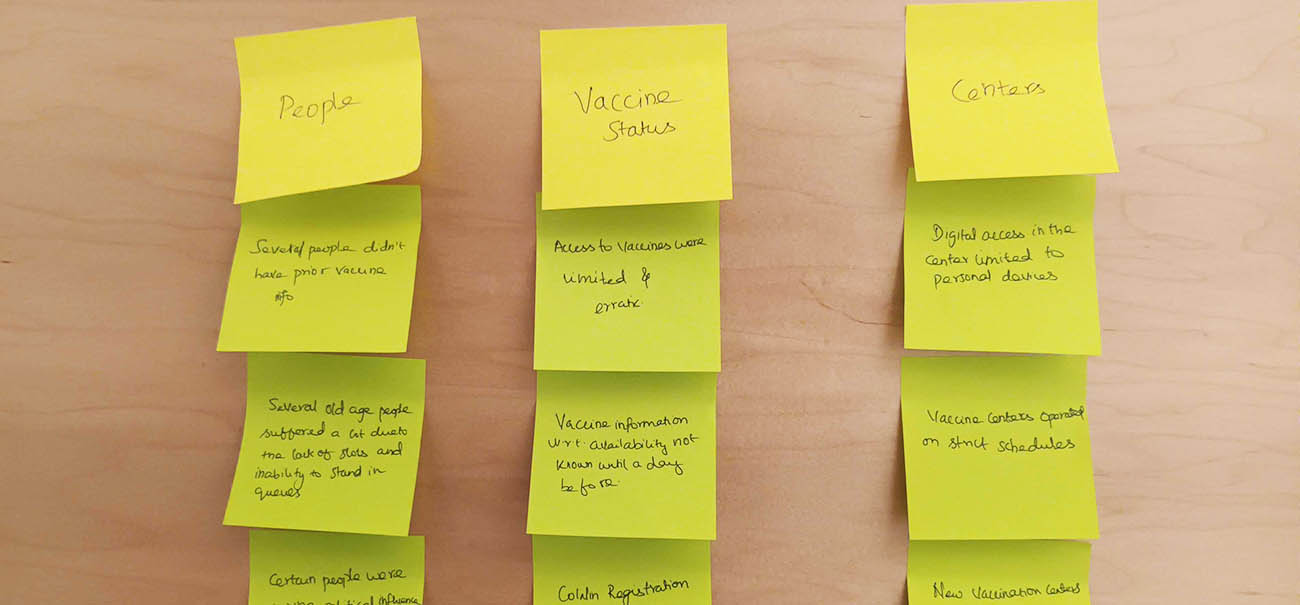 People
Several people didn't
have prior vaccine
info
Several old age people
suffered a lot due to
the lack of slots and
inability to stand in
queues
Certain people were
political influence
Vaccine
Status
Access to Vaccines were
limited &
erratic.
Vaccine information
w.r.t. availability not
known until a day
before.
CoWin Registration
Centers
Digital access in the
center limited to
personal devices
Vaccine Centers operated
on strict schedules
New Vaccination Centers